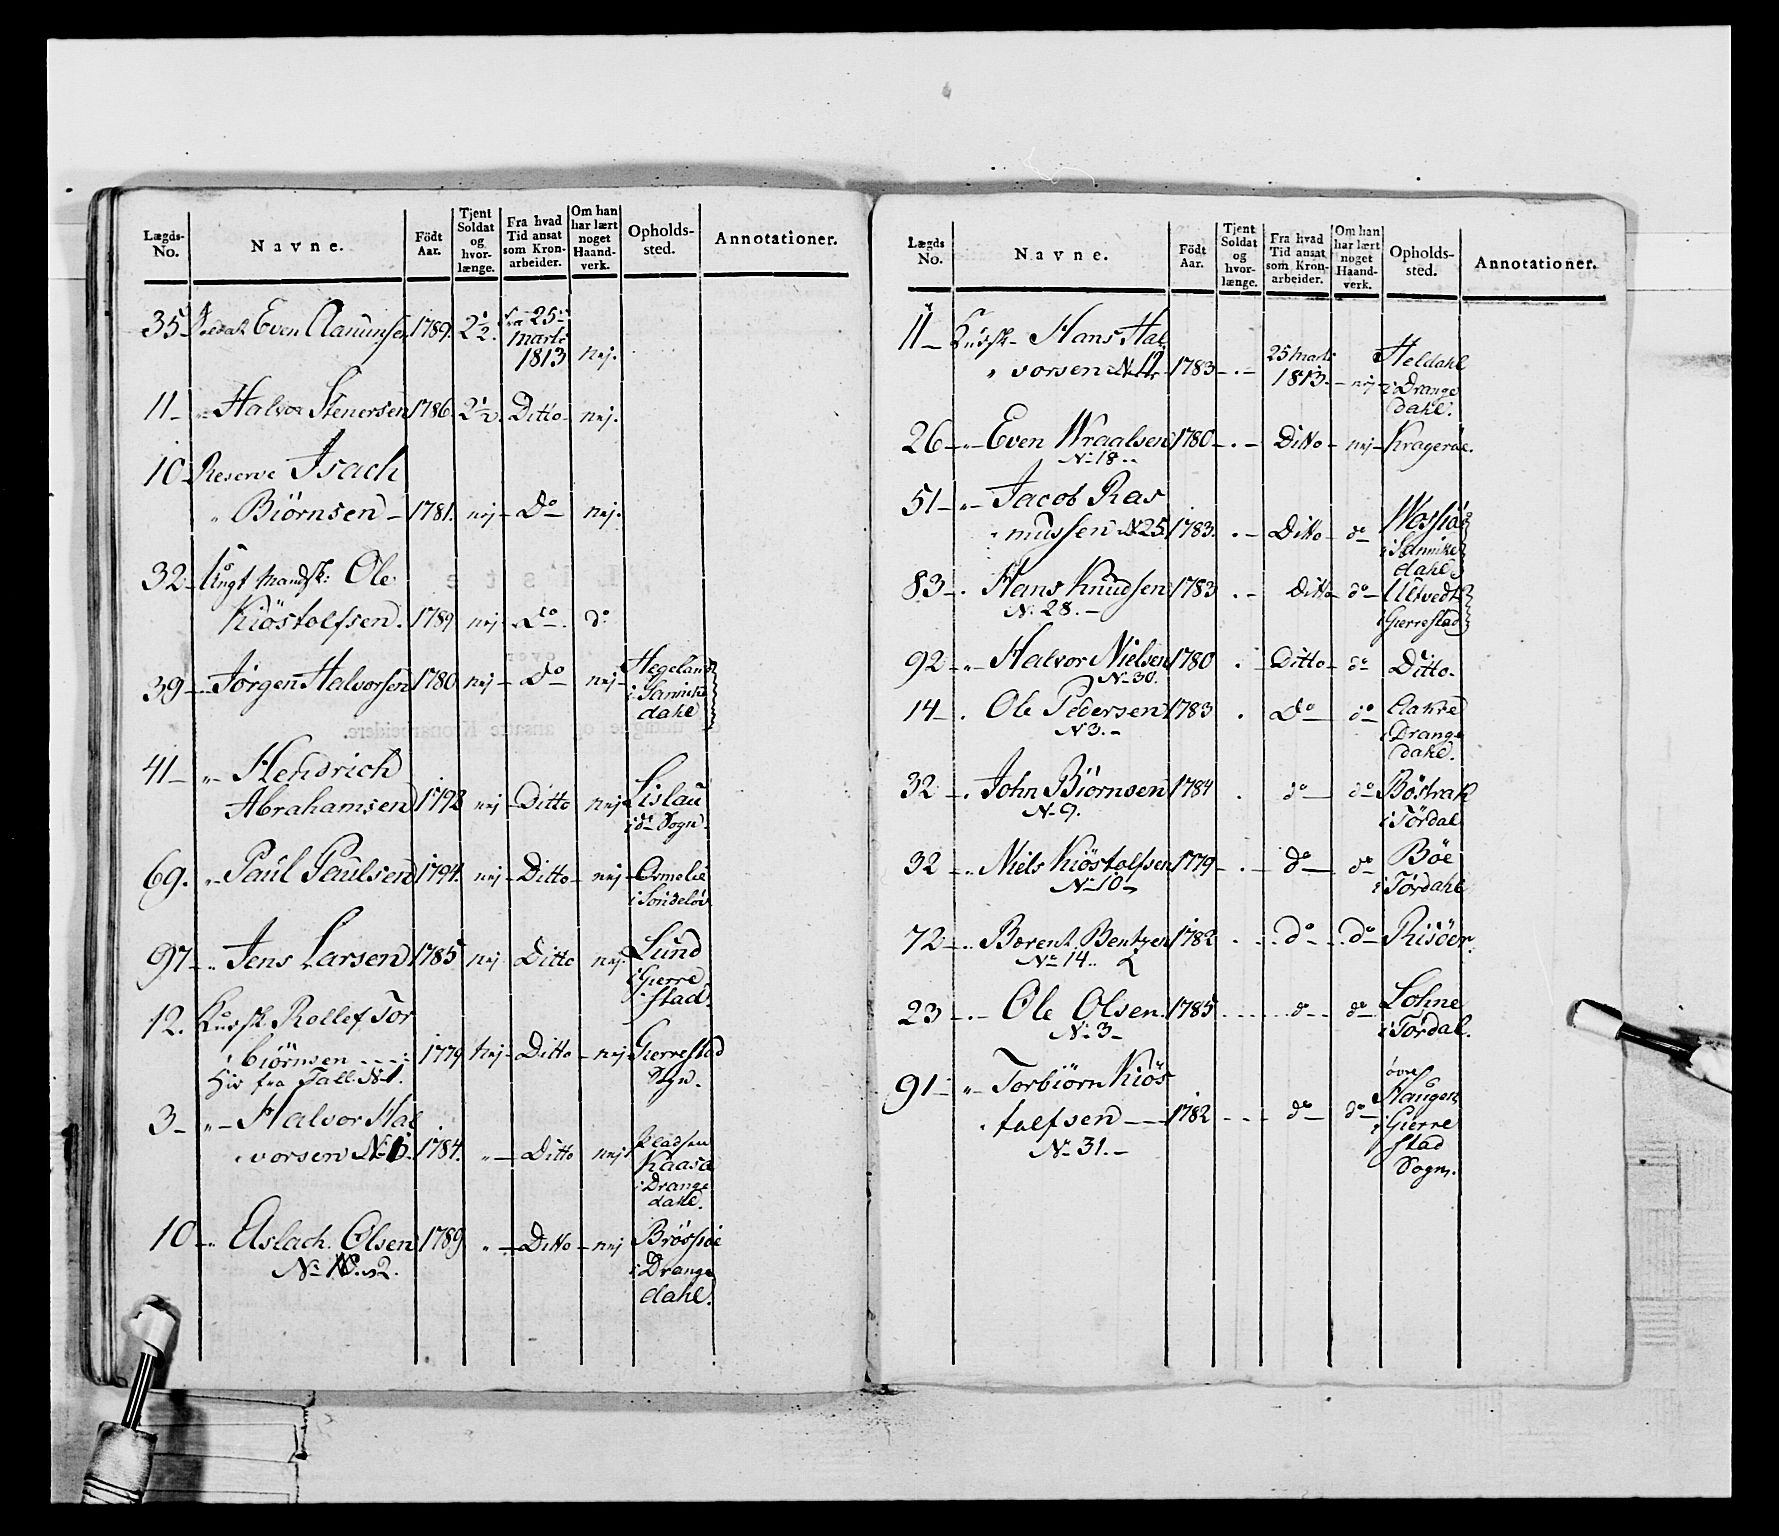 Lægds-No. Navne. Födt Aar. Tjent Soldat og hvor-længe. Fra hvad Tid ansat som Kron-arbeider. Om han har lært noget Haand-verk. Opholds-sted. Annotationer.
35 Soldat Even Aanunsen 1789. 2 1/2. fra 25de
Marti
1813 nej.
11 " Halvor Stenersen 1786. 2 1/2. Ditto nej.
10 Reserve Isach
" Biörnsen 1781. nej Do nej.
32 Ungt Mandsk: Ole
Kiöstolfsen. 1789 nej do do
39 Jørgen Halvorsen 1780 nej do nej Hegeland
i Sannike
dahl
41 " Hendrich
Abrahamsen 1792 nej Ditto nej Lislau
i do Sogn.
69. " Paul Paulsen 1794. nej Ditto nej Osmelie
i Söndeløv
97 " Jens Larsen 1785 nej Ditto nej. Lund
i Gierre
stad.
12. Kudsk Rollef Tor
biörnsen 1779 Nej Ditto nej Gierrestad
Hid fra Tall. No 1. Sogn.
3 " Halvor Hal
vorsen No 6. 1784. " Ditto nej Pladsen
Kaasa
i Drange
dahl.
10 " Aslach Olsen 1789 " Ditto nej Brössie
No 10. 2. i Drange
dahl.
Lægds No. Navne. Födt Aar. Tjent Soldat og hvor-længe. Fra hvad Tid ansat som Kron-arbeider. Om han har lært noget Haand-verk. Opholds-sted. Annotationer.
11 Kudsk Hans Hal
" vorsen No 12 1783 25 Marti 1813 nej Heldahl
i Drange
dahl.
26 " Even Wraalsen 1780 Ditto nej Kragerøe.
No 18.
51 " Jacob Ras
mussen No 25. 1783. Ditto do Wossiö
i Sannike
dahl
83 Hans Knudsen 1783 Ditto do Ultvedt
No 28. i Gierrestad
92 " Halvor Nielsen 1780 Ditto do Ditto
No 30.
14 Ole Pedersen 1783 Do do Aakre
No 3. i Drange
dahl.
32 John Biörnsen 1784 do do Böstrak
No 9. i Tördal
32 " Niels Kiöstolfsen 1779 do do Böe
No 10 i Tördahl
72 Berent Bentzen 1782 do do Risöer.
No 14.
23 Ole Olsen. 1785 do do Lohne
No 3 i Tördal.
91 " Torbiörn Kiös
tolfsen 1782 do do øvre
No 31. Haugen
i Gierre
stad
Sogn.